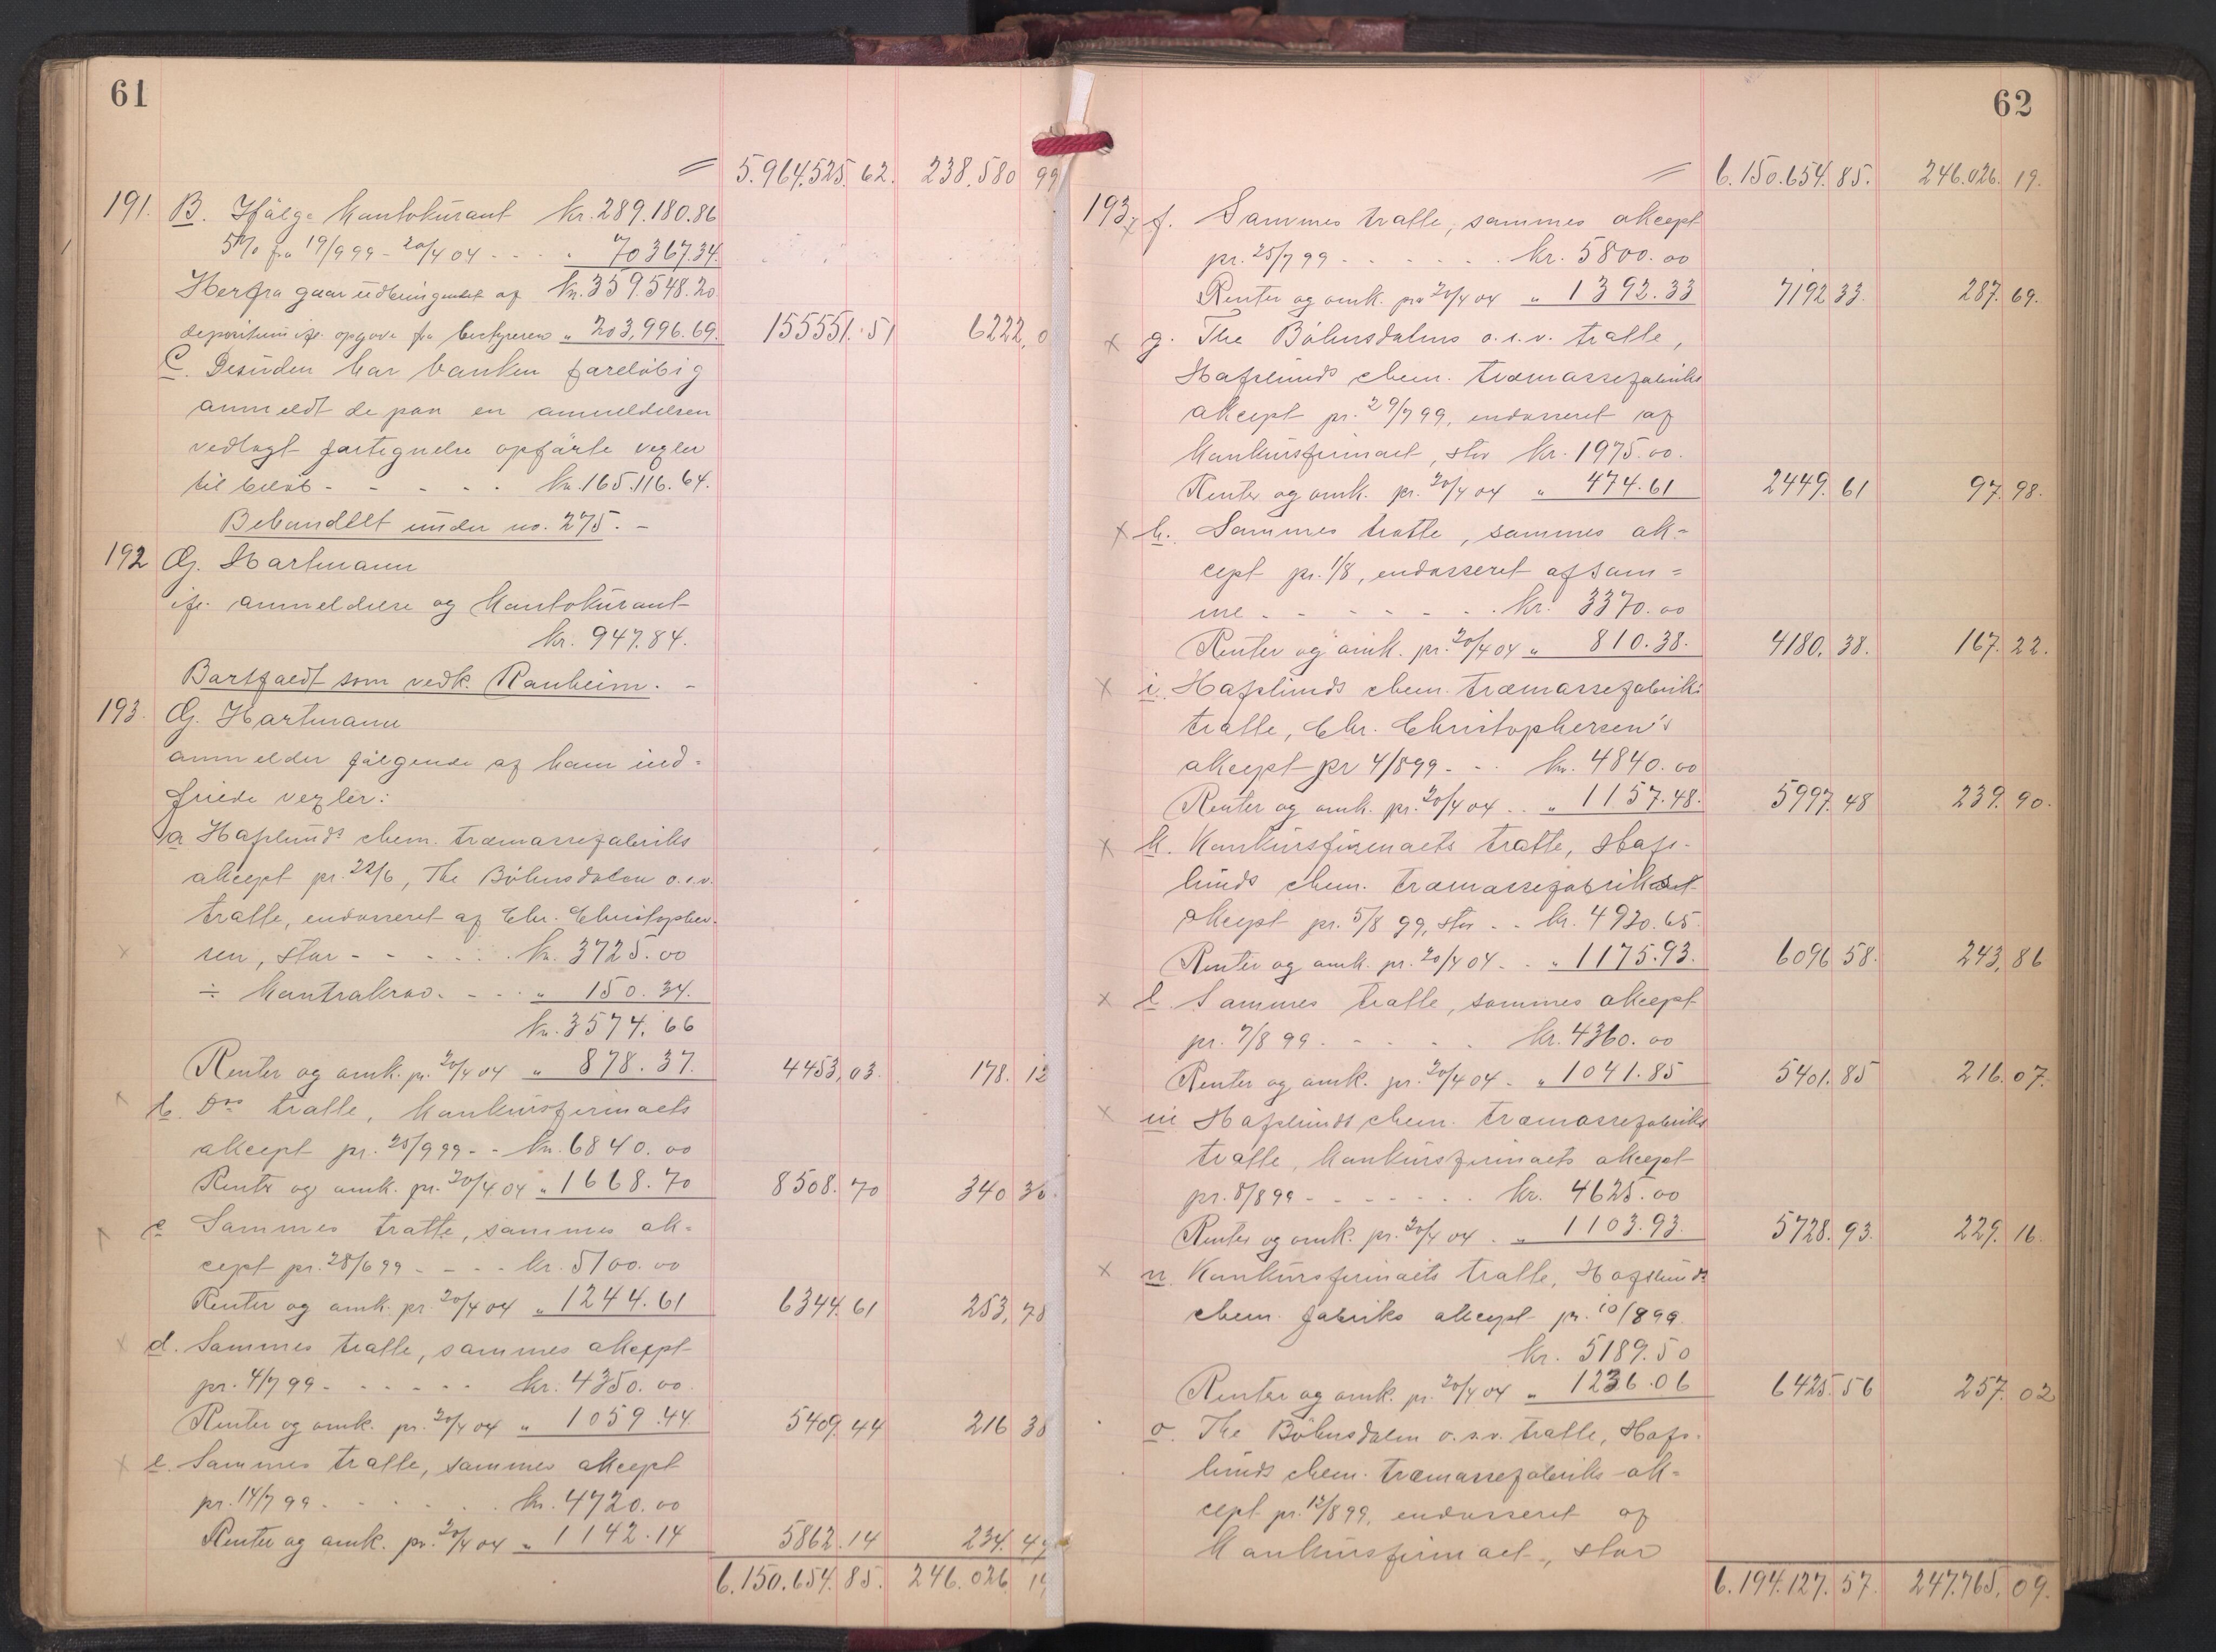 61
= 5.964.525. 62. 238.580 99
191. B. Ifølge Kontokurant kr. 289.180.86
5% fra 19/9 99 - 20/4 04 - - - " 70367.34.
Herfra gaar udbringendet af kr. 359.548.20
depositum ifø. opgave fra bestyreren " 203,996.69. 155551. 51 6222, 0
C. Desuden har banken foreløbig
anmeldt de paa en anmeldelsen
vedlagt fortegnelse opførte vexler
til beløb - - - - - kr. 165.116.64.
Behandlet under no. 275. -
192 G. Hartmann
ifø. anmeldelse og Kontokurant
kr. 947.84.
Bortfaldt som vedk. Ranheim. -
193. G. Hartmann
anmelder følgende af ham ind-
friede vexler:
a Hafslunds chem. træmassefabriks
akcept pr. 22/6, The Böhnsdalen o.s.v.
tratte, endosseret af Chr. Christopher-
sen, stor - - - - - kr. 3725.00
÷ Kontrakrav. - - - " 150.34.
kr. 3574.66
Renter og omk. pr. 20/4 04 " 878.37. 4453,03. 178. 12
b. Dos tratte, Konkursfirmaets
akcept pr. 25/9 99 - - kr. 6840.00
Renter og omk. pr. 20/4 04 " 1668.70 8508. 70 340 35.
c Sammes tratte, sammes ak-
cept pr. 28/6 99 - - - - kr. 5100.00
Renter og omk. pr. 20/4 04 " 1244.61 6344. 61 253, 78
d. Sammes tratte, sammes akcept
pr. 4/7 99 - - - - - - kr. 4350.00.
Renter og omk. pr. 20/4 04 " 1059.44. 5409. 44 216 38
e. Sammes tratte, sammes akcept
pr. 14/7 99 - - - - - kr. 4720.00
Renter og omk. pr. 20/4 04 " 1142.14 5862. 14 234. 49
6.150.654. 85. 246.026. 19
62
= 6.150.654. 85. 246.026. 19.
193 x f. Sammes tratte, sammes akcept
pr. 25/7 99 - - - - - - kr. 5800.00
Renter og omk. pr. 20/4 04 " 1392.33 7192 33. 287. 69.
x g. The Böhnsdalens o.s.v. tratte,
Hafslunds chem. træmassefabriks
akcept pr. 29/7 99, endosseret af
Konkursfirmaet, stor kr. 1975.00.
Renter og omk. pr. 20/4 04 " 474.61 2449. 61 97. 98.
x h. Sammes tratte, sammes ak-
cept pr. 1/8, endosseret af sam=
me - - - - - - - kr. 3370.00
Renter og omk. pr. 20/4 04 " 810.38. 4180. 38. 167. 22.
x i. Hafslunds chem. træmassefabriks
tratte, Chr. Christophersen's
akcept pr 4/8 99 - - - kr. 4840.00
Renter og omk. pr. 20/4 04 - - " 1157.48. 5997. 48 239. 90.
x k. Konkursfirmaets tratte, Hafs-
lunds chem. træmassefabriks
akcept pr. 5/8 99, stor - - kr. 4920.65.
Renter og omk. pr. 20/4 04 - - " 1175.93. 6096 58. 243, 86
x l. Sammes tratte, sammes akcept
pr. 7/8 99 - - - - - kr. 4360.00
Renter og omk. pr. 20/4 04 - " 1041.85 5401. 85 216. 07.
x m Hafslunds chem. træmassefabriks
tratte, Konkursfirmaets akcept
pr. 8/8 99 - - - - - - - kr. 4625.00
Renter og omk. pr. 20/4 04 - " 1103.93. 5728. 93. 229. 16.
x n. Konkursfirmaets tratte, Hafslunds
chem. fabriks akcept pr. 10/8 99.
kr. 5189.50
Renter og omk. pr. 20/4 04 " 1236.06 6425. 56 257. 02
o. The Böhnsdalen o.s.v. tratte, Hafs-
lunds chem. træmassefabriks ak-
cept pr. 12/8 99, endosseret af
Konkursfirmaet, stor
6.194.127. 57. 247.765. 09.